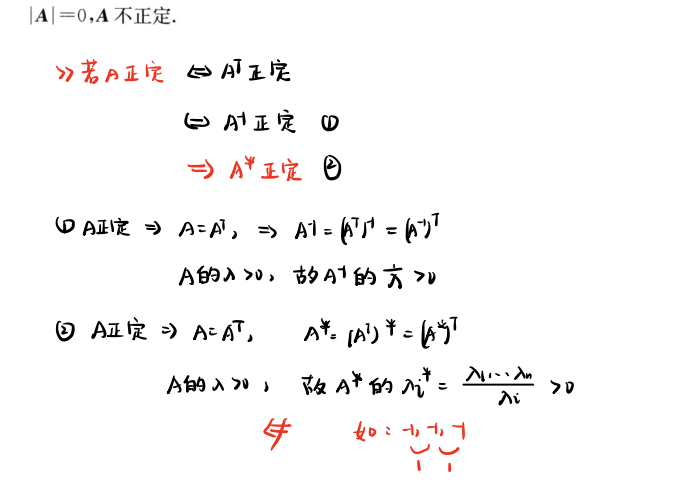 |A|=0,A 不正定.
>> 若A正定 ⇔ Aᵀ正定
⇔ A⁻¹正定 ①
⇒ A*正定 ②
① A正定 ⇒ A=Aᵀ, ⇒ A⁻¹=(Aᵀ)⁻¹=(A⁻¹)ᵀ
A的λ>0, 故A⁻¹的 1/λ >0
② A正定 ⇒ A=Aᵀ, A*=(Aᵀ)*=(A*)ᵀ
A的λ>0, 故A*的λi*= λ1...λn/λi >0
⇍ 如: -1, -1, -1
1 1